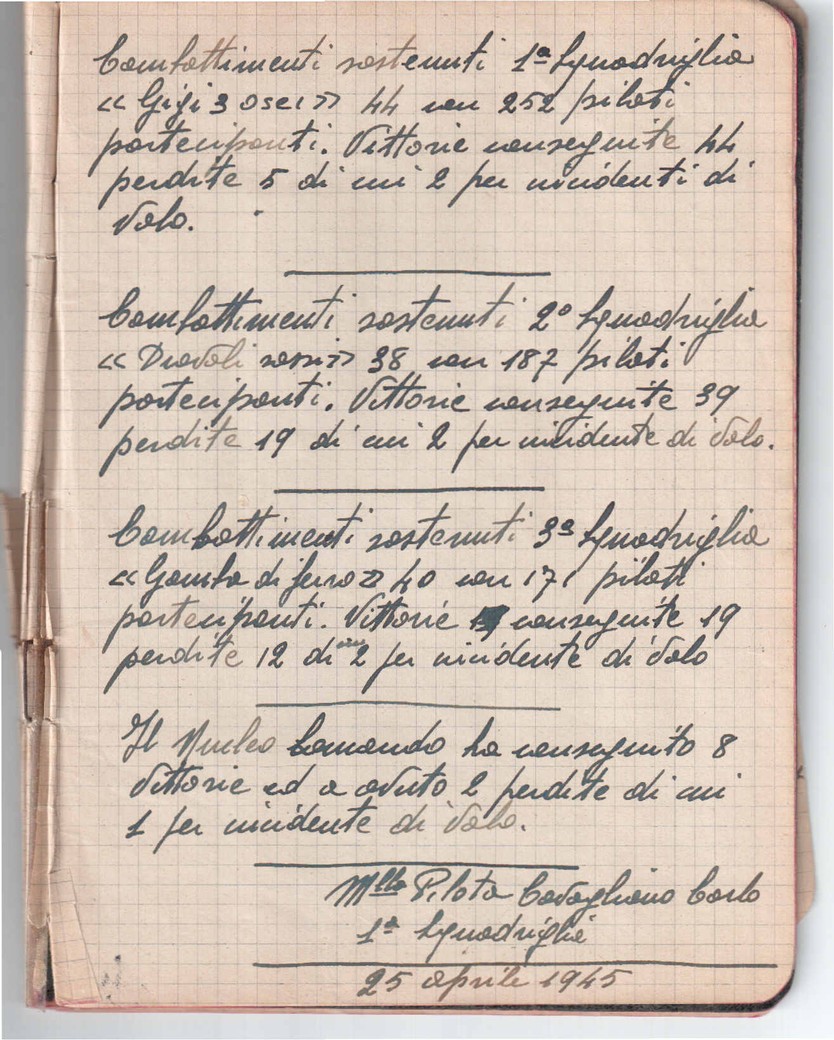 Combattimenti sostenuti 1ª Squadriglia
« Gigi 3 osei » 44 con 252 piloti
partecipanti. Vittorie conseguite 44
perdite 5 di cui 2 per incidenti di
Volo.
Combattimenti sostenuti 2º Squadriglia
« Diavoli rossi » 38 con 187 piloti
partecipanti. Vittorie conseguite 39
perdite 19 di cui 2 per incidente di Volo.
Combattimenti sostenuti 3ª Squadriglia
« Gamba di ferro » 40 con 171 piloti
partecipanti. Vittorie conseguite 19
perdite 12 di cui 2 per incidente di Volo
Il Nucleo Comando ha conseguito 8
Vittorie ed a avuto 2 perdite di cui
1 per incidente di Volo.
Mllo Pilota Cavagliano Carlo
1ª Squadriglia
25 aprile 1945